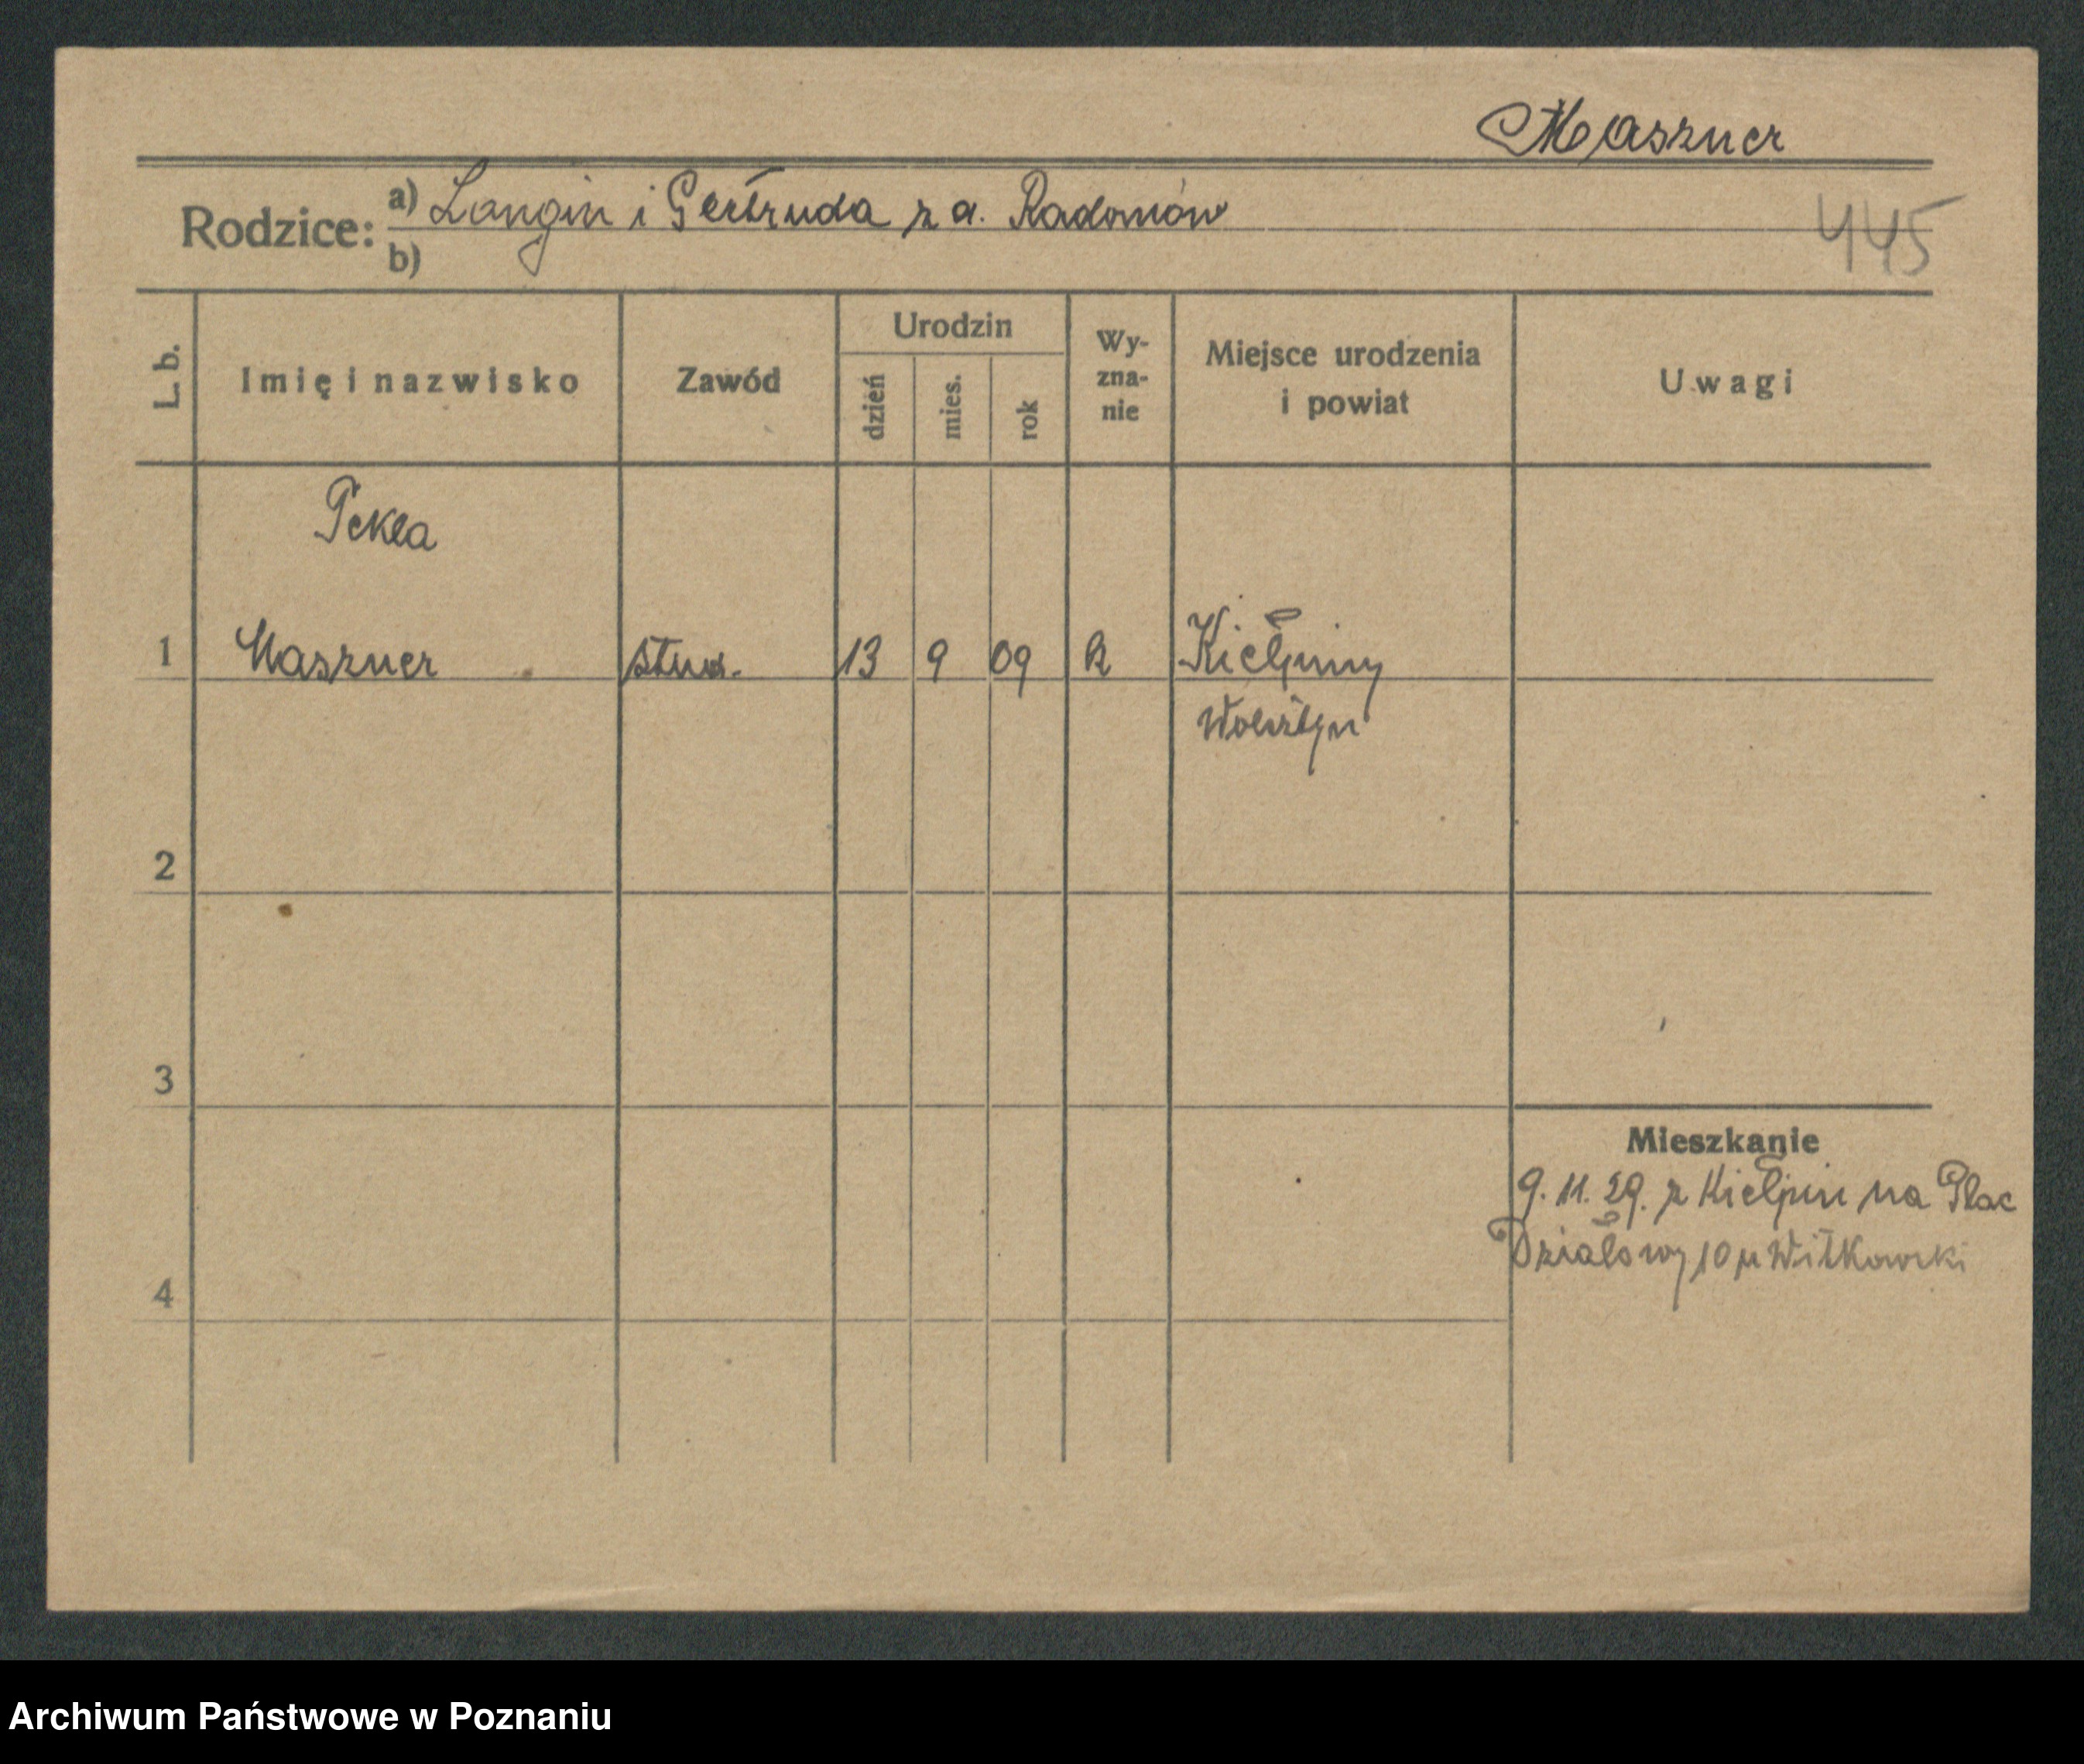 Maszner
Rodzice: a) Longin i Gertruda z d. Radomów
b)
445
L. b.
Imię i nazwisko
Zawód
Urodzin
dzień
mies.
rok
Wy-
zna-
nie
Miejsce urodzenia
i powiat
Uwagi
Tekla
1 Maszner stud. 13 9 09 k Kiełpiny
Wolsztyn
2
3
4
Mieszkanie
9. 11. 29. z Kiełpin na Plac
Działowy 10 u Witkowski
Archiwum Państwowe w Poznaniu